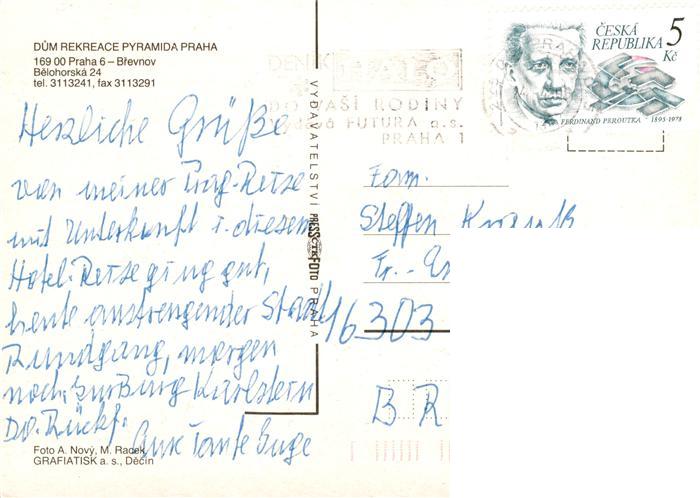 DŮM REKREACE PYRAMIDA PRAHA
169 00 Praha 6 – Břevnov
Bělohorská 24
tel. 3113241, fax 3113291
ČESKÁ
REPUBLIKA
5
Kč
FERDINAND PEROUTKA 1895-1978
DENÍK
DO VAŠÍ RODINY
Vydává FUTURA a.s.
PRAHA 1
Herzliche Grüße
von meiner Prag-Reise
mit Unterkunft i. diesem
Hotel. Reise ging gut,
heute anstrengender Stadt
Rundgang, morgen
noch zur Burg Karlstein
Do. Rückf.
Tante Inge
VYDAVATELSTVÍ PRESSFOTO PRAHA
Fam.
Steffen
Fr.-
16303
B R
Foto A. Nový, M. Racek
GRAFIATISK a. s., Děčín